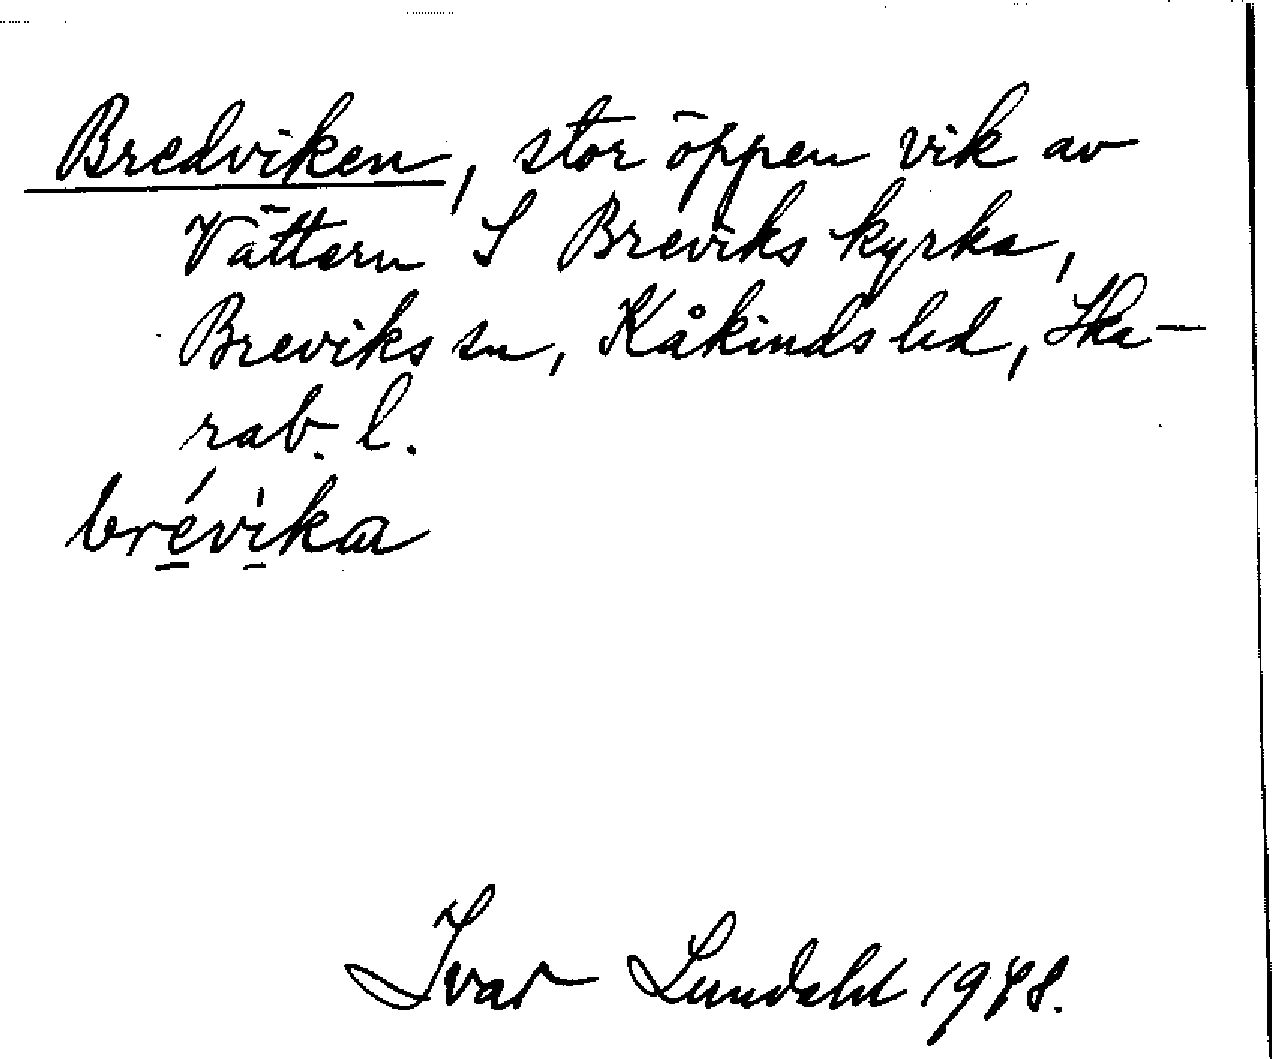 Bredviken, stor öppen vik av
Vättern S Breviks kyrka,
Breviks sn, Kåkinds hd, Ska-
rab. l.
brévìka
Ivar Lundahl 1948.